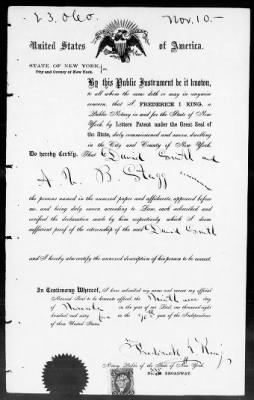 Nov. 10-
United States of America.
STATE OF NEW YORK,
City and County of New York.
By this Public Instrument be it known,
to all whom the same doth or may in anywise
concern, that I, FREDERICK I KING, a
Public Notary in and for the State of New
York, by Letters Patent under the Great Seal of
the State, duly commissioned and sworn, dwelling
in the City and County of New York.
Do hereby Certify, That David Smith and
A. N. B. Stagg
the persons named in the annexed paper and affidavits, appeared before
me, and being duly sworn according to Law, each subscribed and
verified the declaration made by him respectively which I deem
sufficient proof of the citizenship of the said David Smith
and I hereby also certify the annexed description of his person to be correct.
In Testimony Whereof, I have subscribed my name and caused my official
Notarial Seal to be hereunto affixed, the Ninth day
of November in the year of our Lord, one thousand eight
hundred and sixty five in the 90th year of the Independence
of these United States.
Frederick I. King,
Notary Public of the State of New York
BROADWAY.